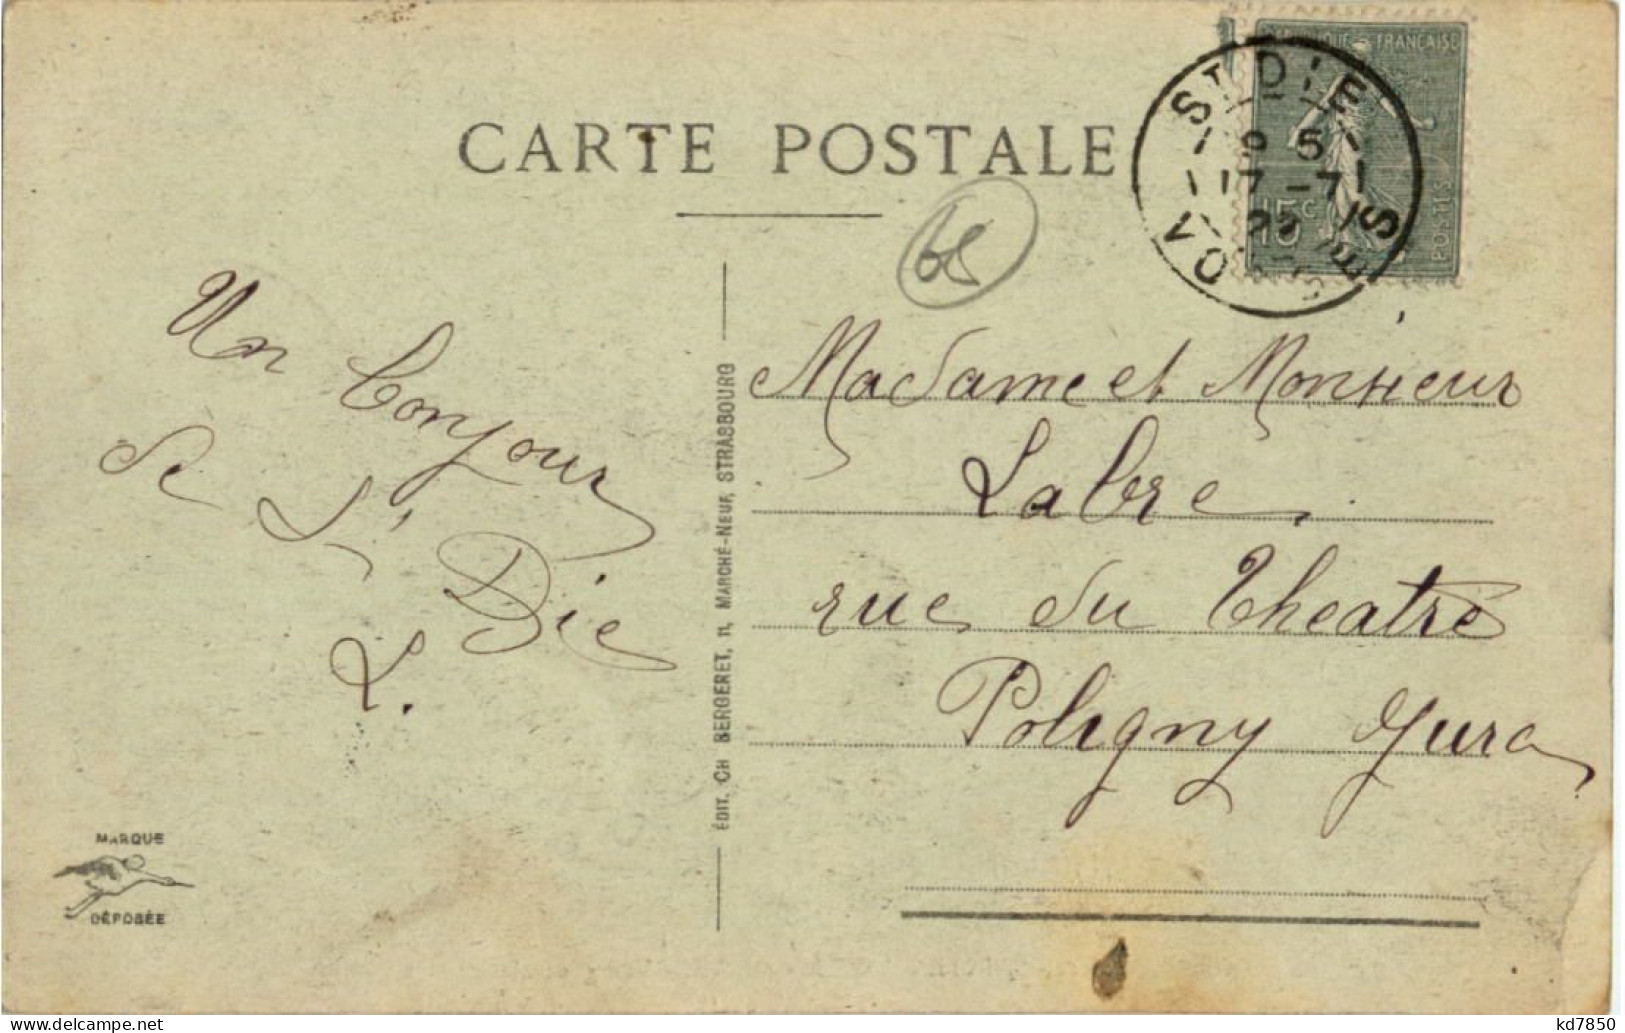 CARTE POSTALE
RÉPUBLIQUE FRANÇAISE
15c
POSTES
ST DIE
5
17 -7
22
VOSGES
Un bonjour
de St Die
L.
Madame et Monsieur
Labre
rue du Theatre
Poligny Jura
ÉDIT. CH BERGERET, 11, MARCHÉ-NEUF, STRASBOURG
MARQUE
DÉPOSÉE
kd7850